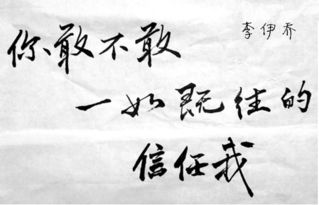 李伊乔
你敢不敢
一如既往的
信任我